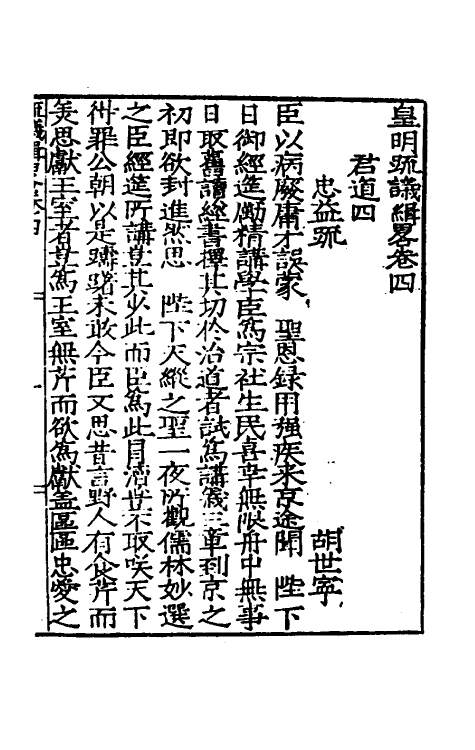 皇明疏議輯畧卷四
君道四
忠益疏
胡世寧
臣以病廢庸才誤蒙 聖恩録用强疾來京途聞 陛下
日御經筵勵精講學臣爲宗社生民喜幸無限舟中無事
日取舊讀經書擇其切於治道者試爲講義三章到京之
初即欲封進然思 陛下天縱之聖一夜所觀儒林妙選
之臣經筵所講豈其少此而臣爲此冐瀆豈不取咲天下
得罪公朝以是躊躇未敢今臣又思昔言野人有食芹而
美思獻王室者豈爲王室無芹而欲爲獻盖區區忠愛之